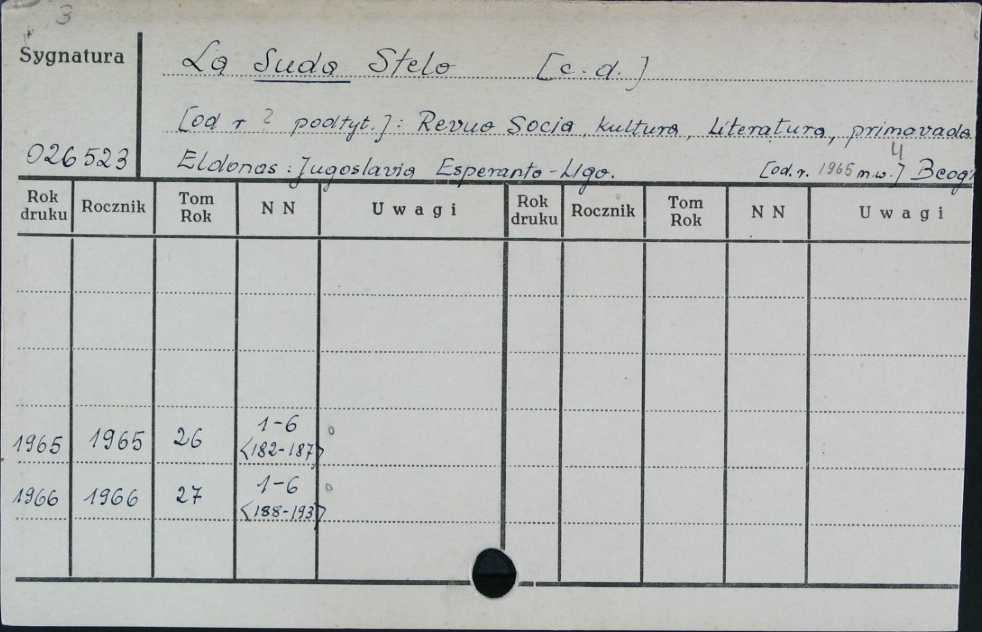 3
Sygnatura La Suda Stelo [c.d.]
[od r ? podtyt.]: Revuo Socia, kultura, Literatura, primovada
4
026523 Eldonas: Jugoslavia Esperanto-Ligo. [od.r. 1965 m.w.] Beogr
Rok druku Rocznik Tom Rok NN Uwagi Rok druku Rocznik Tom Rok NN Uwagi
1965 1965 26 1-6 <182-187>
1966 1966 27 1-6 <188-193>